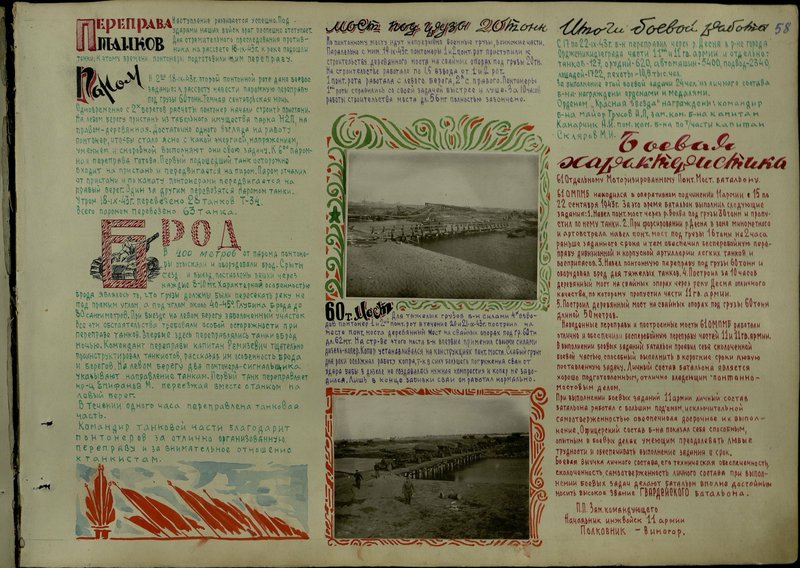 58
Переправа
танков
Наступление развивается успешно. Под
ударами наших войск враг поспешно отступает.
Для стремительного преследования против-
ника на рассвете 18-IX-43г. к реке подошли
танки. К этому времени понтонеры подготовили им переправу.
Паром
В 2:00 18-IX-43г. второй понтонной роте дано боевое
задание: к рассвету навести паромную переправу
под грузы 60 тонн. Темная сентябрьская ночь.
На левом берегу пристань из табельного имущества парка Н2П, на
правом-деревянная. Достаточно одного взгляда на работу
понтонер, чтобы стало ясно с какой энергией, напряжением,
умением и сноровкой выполняют они свою задачу. К 6:00 паром-
ная переправа готова. Первый подошедший танк осторожно
входит на пристань и передвигается на паром. Паром отчалил
от пристани и по канату понтонерами передвигается на
правый берег. Один за другим перевозятся паромом танки.
Утром 18-IX-43г. перевезено 25 танков Т-34.
Всего паромом перевезено 63 танка.
Брод
В 400 метров от парома понтоне-
ры отыскали и оборудовали брод. Срыты
съезд и выезд, поставлены вешки через
каждые 8-10 м. Характерной особенностью
брода являлось то, что грузы должны были пересекать реку не
под прямым углом, а под углом около 40-45°. Глубина брода до
80 сантиметров. При выезде на левом берегу заболоченный участок.
Все эти обстоятельства требовали особой осторожности при
переправе танков. Впервые здесь переправлялись танки вброд
ночью. Командир переправы капитан Ременевич тщательно
проинструктировал танкистов, рассказав им особенность брода
и берегов. На левом берегу два понтонера-сигнальщика
указывают направление танкам. Первый танк переправляет
кр-ц Епифанов М. переезжая вместе с танком на
левый берег.
В течении одного часа переправлена танковая
часть.
Командир танковой части благодарит
понтонеров за отлично организованную
переправу и за внимательное отношение
к танкистам.
Мост под грузы 20 тонн
По понтонному мосту идут непрерывно военные грузы, воинские части.
Параллельно с ним 14-IX-43г понтонеры 1 и 2 понт.рот приступили к
строительству деревянного моста на свайных опорах под грузы 20 тн.
На строительстве работало по 1,5 взвода от 1 и 2 рот.
1 понт.рота работала с левого берега, 2я с правого. Понтонеры
1й роты справились со своей задачей быстрее и лучше. За 10 часов
работы строительство моста дл. 86 мт полностью закончено.
60 т. Мост
Для тяжелых грузов в-н силами 4 взво-
дов понтонер 1 и 2й понт. рот в течение 20 и 21-IX-43г построил на
место понт. моста деревянный мост на свайных опорах под гр. 60 тн
дл. 62 мт. На стр-ве этого моста в-н впервые применил своими силами
дизель-копер. Копер устанавливался на конструкциях понт. моста. Слабый грунт
дна реки осложнял работу копра, т-к в силу большого погружения сваи от
ударов бабы в дизеле не создавалась нужная компрессия и копер не заво-
дился. Лишь в конце забивки сваи он работал нормально.
Итоги боевой работы
С 17 по 22-IX-43г. в-н переправил через р. Десна в р-не города
Орджоникидзеград части 11й и 11 гв. армии и отдельно:
танков-127, орудий-620, автомашин-5400, подвод-2340,
лошадей-1722, пехоты-10,8 тыс. чел.
За выполнение этой боевой задачи 24 чел. из личного состава
в-на награждены орденами и медалями.
Орденом „Красная Звезда" награждены: командир
в-на майор Трусов А.П., зам. ком. в-на капитан
Канарчик А.И. пом. ком. в-на по т/части капитан
Скляров М.И.
Боевая
характеристика
61 Отдельному Моторизированному Понт. Мост. батальону.
61 ОМПМБ находился в оперативном подчинении 11 армии с 15 по
22 сентября 1943г. За это время батальон выполнил следующие
задания: 1. Навел понт. мост через р. Десна под грузы 30 тонн и пропу-
стил по нему танки. 2. При форсировании р. Десна в зоне минометного
и артобстрела навел понт. мост под грузы 16 тонн на 2 часа
раньше заданного срока и тем обеспечил бесперебойную пере-
праву дивизионной и корпусной артиллерии легких танков и
боеприпасов. 3. Навел понтонную переправу под грузы 60 тонн и
оборудовал брод для тяжелых танков. 4. Построил за 10 часов
деревянный мост на свайных опорах через реку Десна отличного
качества, по которому пропустил части 11 гв. армии.
5. Построил деревянный мост на свайных опорах под грузы 60 тонн
длиной 50 метров.
Наведенные переправы и построенные мосты 61 ОМПМБ работали
отлично и обеспечили бесперебойную переправу частей 11 и 11 гв. армии.
В выполнении боевых заданий батальон проявил себя сколоченной
боевой частью, способной выполнить в короткие сроки любую
поставленную задачу. Личный состав батальона является
хорошо подготовленным, отлично владеющим понтонно-
мостовым делом.
При выполнении боевых заданий 11 армии личный состав
батальона работал с большим подъемом исключительной
самоотверженностью обеспечивая досрочное их выпол-
нение. Офицерский состав в-на показал себя способным,
опытным в боевых делах умеющим преодолевать любые
трудности и обеспечивать выполнение задания в срок.
Боевая выучка личного состава, его техническая обеспеченность,
сколоченность самоотверженность личного состава при выпол-
нении боевых задач делают батальон вполне достойным
носить высокое звание Гвардейского батальона.
П.П. Зам. командующего
Начальник инжвойск 11 армии
Полковник - Виногор.